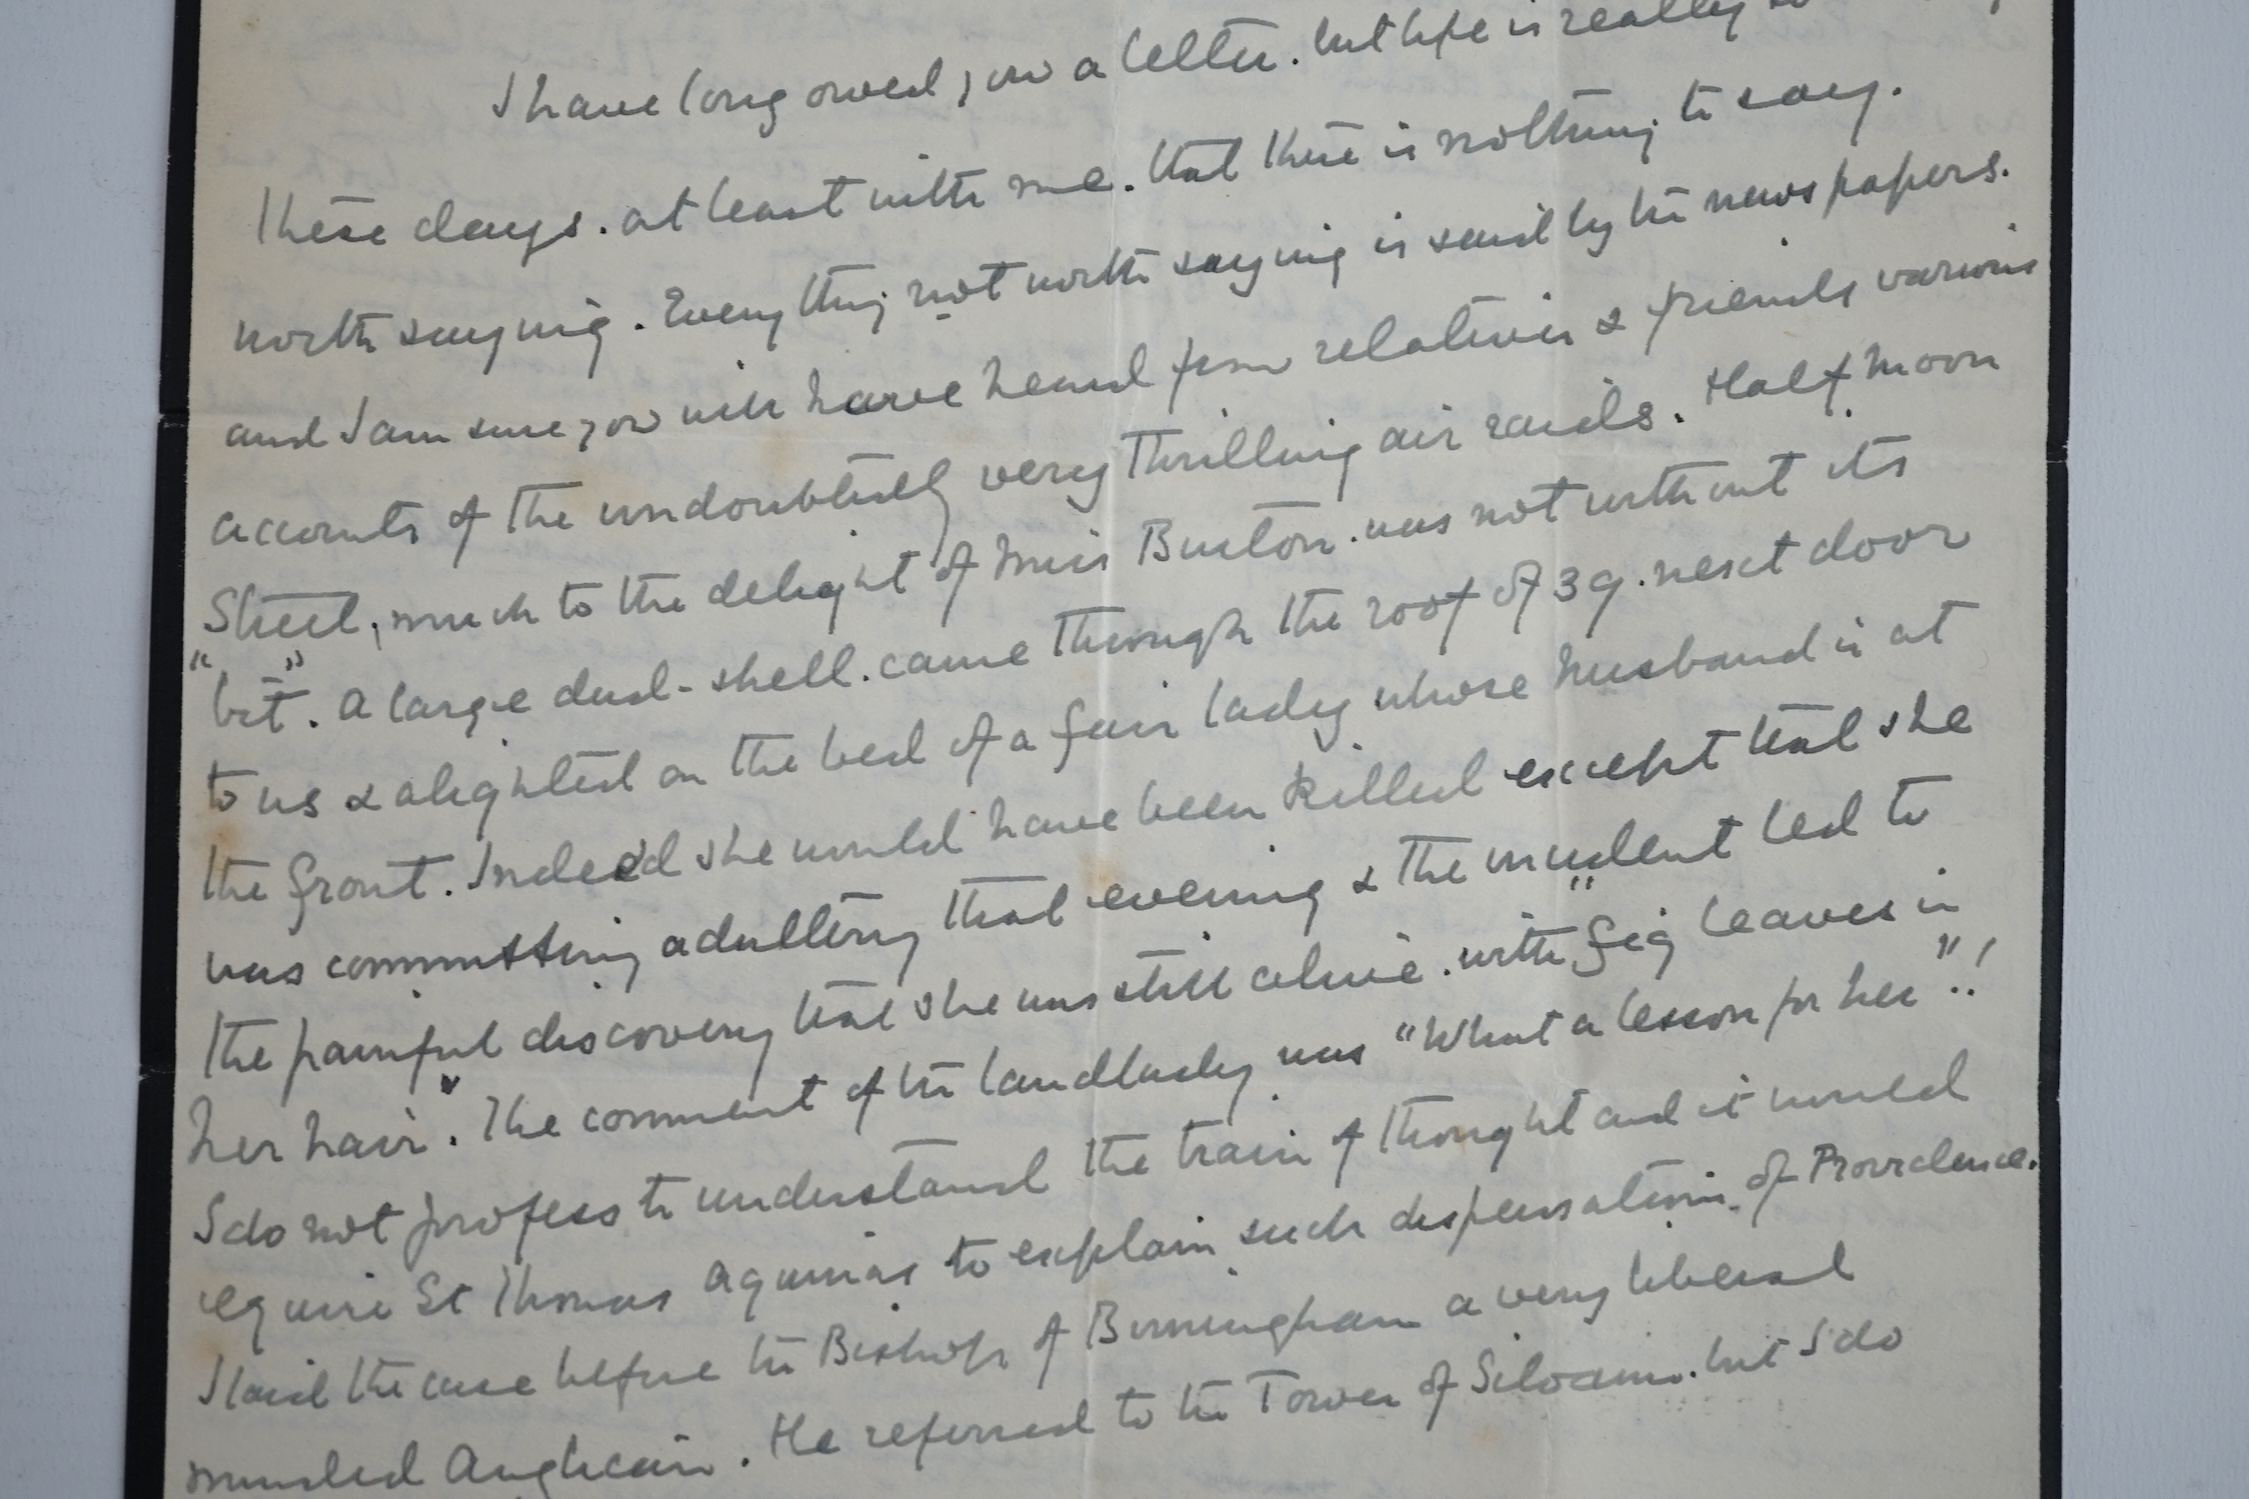 I have long owed you a letter. but life is really so
these days. at least with me. that there is nothing to say.
worth saying. Everything not worth saying is said by the newspapers.
and I am sure you will have heard from relatives & friends various
accounts of the undoubtedly very thrilling air raids. Half Moon
Street, much to the delight of Miss Burton. was not without its
"bit". A large dud-shell. came through the roof of 39. next door
to us & alighted on the bed of a fair lady whose husband is at
the front. Indeed she would have been killed except that she
was committing adultery that evening & the incident led to
the painful discovery that she was still alive. with "fig leaves in
her hair". The comment of the landlady was "What a lesson for her"!
I do not profess to understand the train of thought and it would
require St Thomas Aquinas to explain such dispensations of Providence.
I laid the case before the Bishop of Birmingham a very liberal
minded Anglican. He referred to the Tower of Siloam. but I do